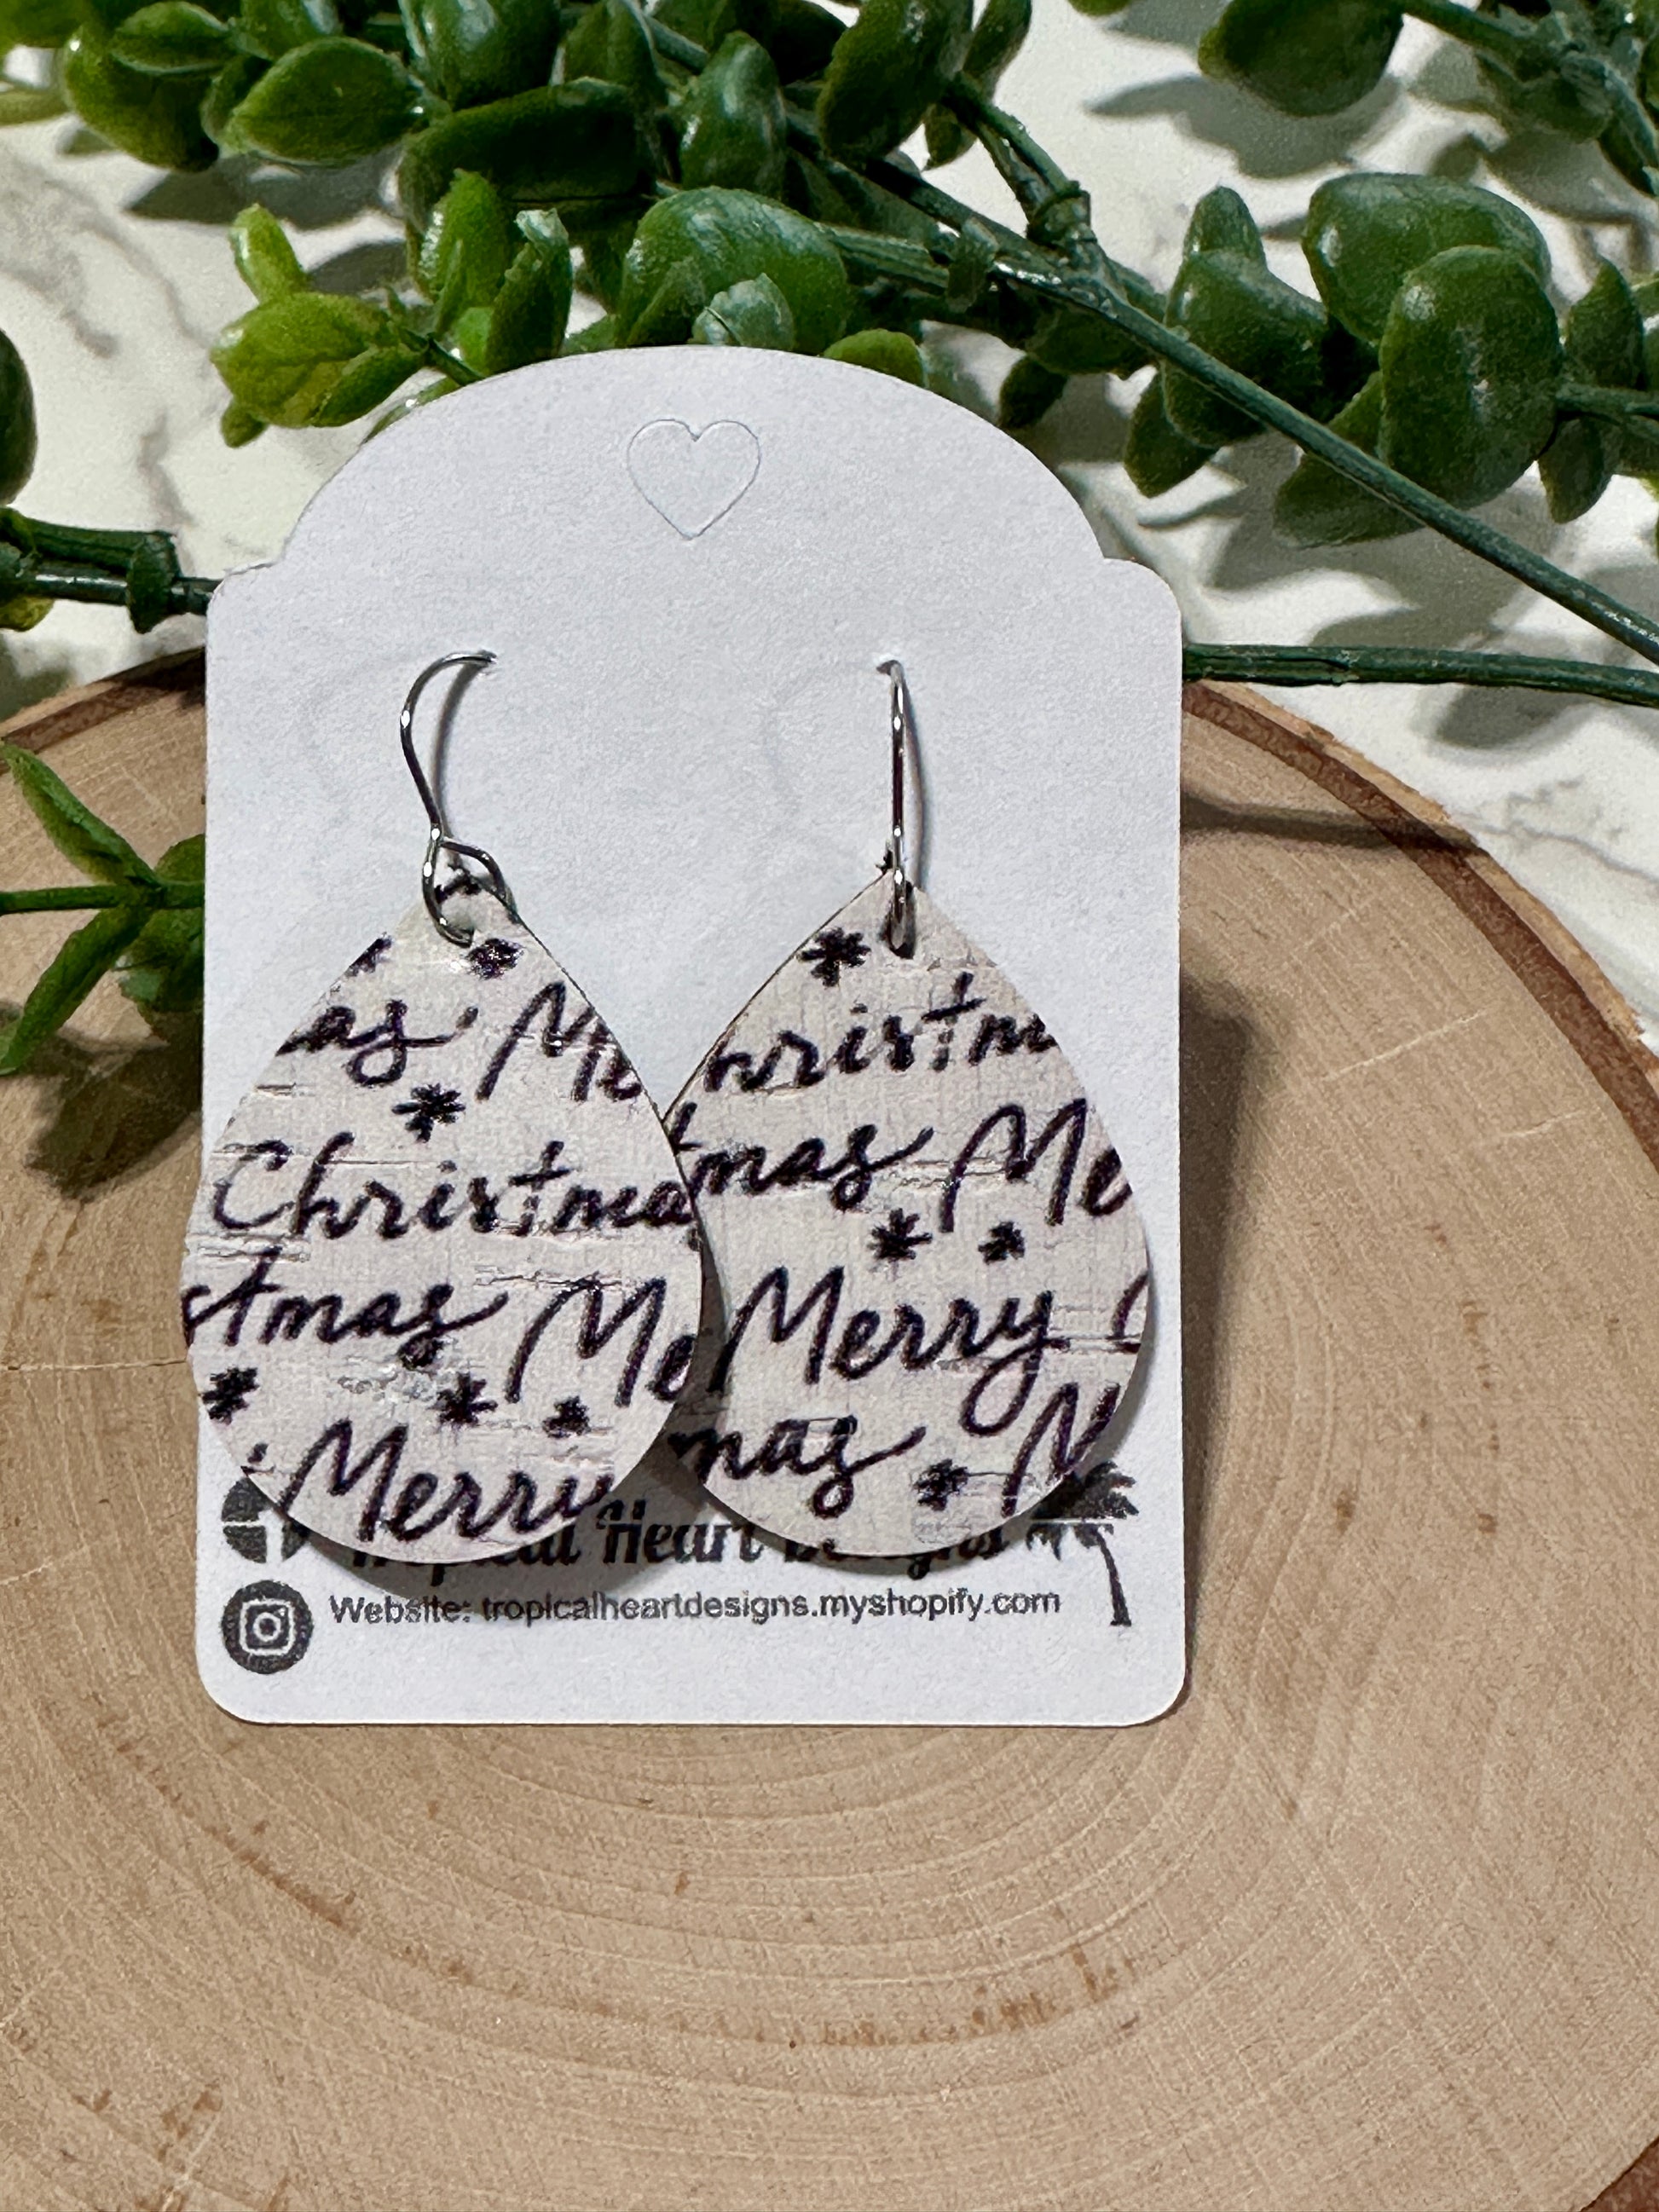 as Me
Christma
stmas Me
Merry
hristm
mas Me
Merry C
mas M
Tropical Heart Designs
Website: tropicalheartdesigns.myshopify.com